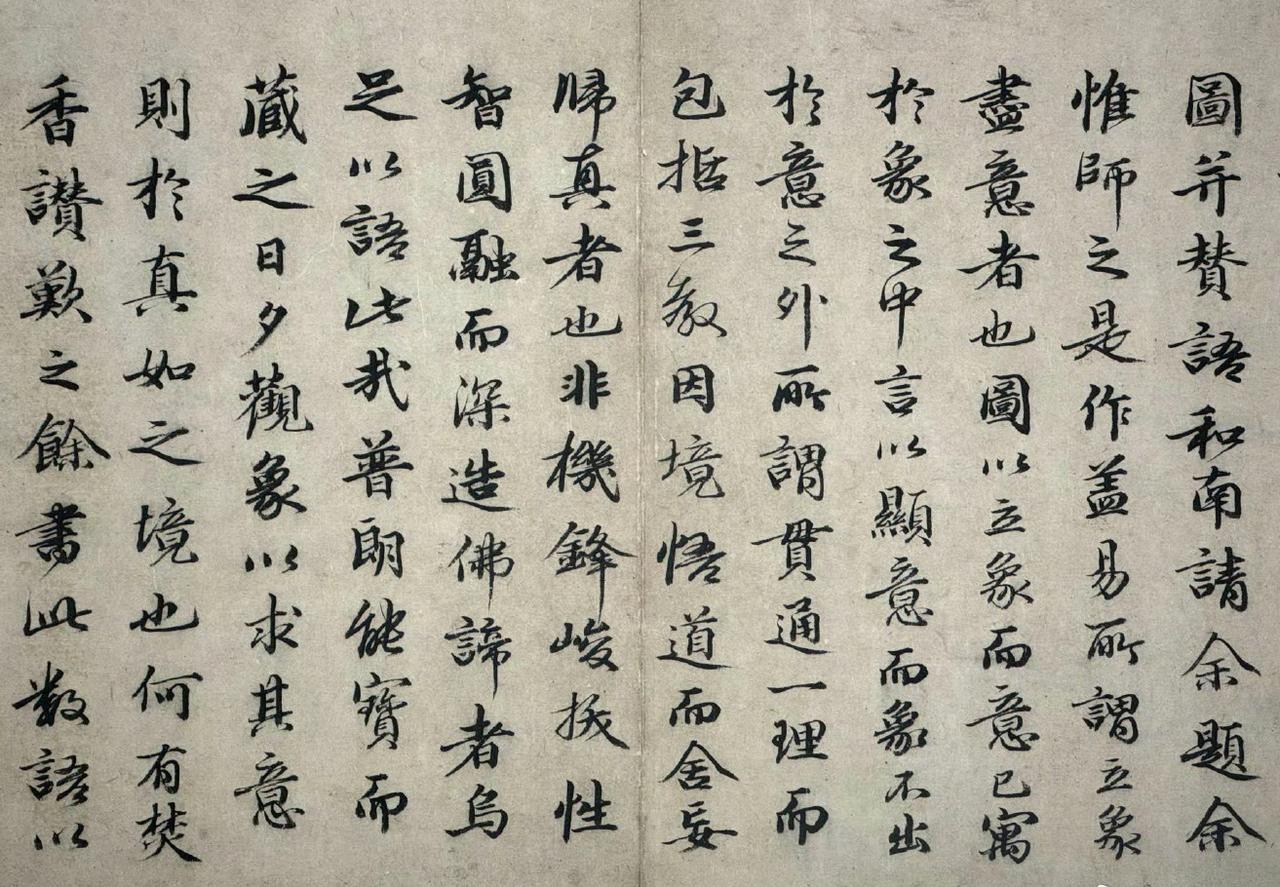 圖并贊語和南請余題余
惟師之是作盖易所謂立象
盡意者也圖以立象而意已寓
於象之中言以顯意而象不出
於意之外所謂貫通一理而
包括三教因境悟道而舍妄
歸真者也非機鋒峻拔性
智圓融而深造佛諦者烏
足以語此哉普朗能寶而
藏之日夕觀象以求其意
則於真如之境也何有焚
香讃歎之餘書此數語以